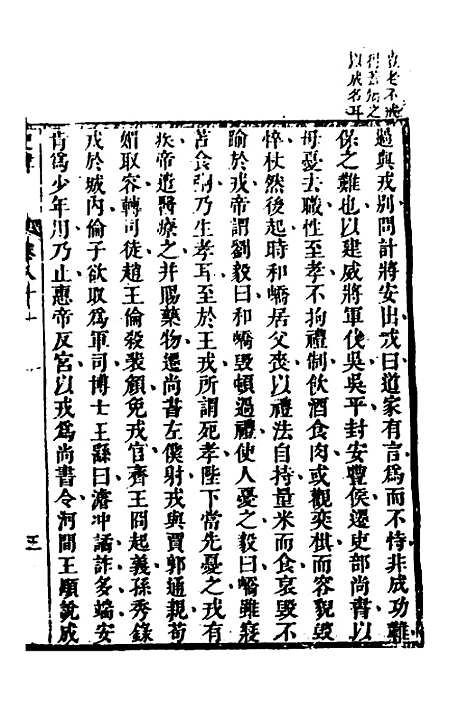 過與戎別問計將安出戎曰道家有言為而不恃非成功難
保之難也以建威將軍伐吳吳平封安豐侯遷吏部尚書以
母憂去職性至孝不拘禮制飲酒食肉或觀奕棋而容貌毀
悴杖然後起時和嶠居父喪以禮法自持量米而食哀毀不
踰於戎帝謂劉毅曰和嶠毀頓過禮使人憂之毅曰嶠雖寢
苫食粥乃生孝耳至於王戎所謂死孝陛下當先憂之戎有
疾帝遣醫療之并賜藥物遷尚書左僕射戎與賈郭通親苟
媚取容轉司徒趙王倫殺裴頠免戎官齊王冏起義孫秀錄
戎於城內倫子欲取為軍司博士王繇曰濬沖譎詐多端安
肯為少年用乃止惠帝反宮以戎為尚書令河間王顒說成
卷八十
三